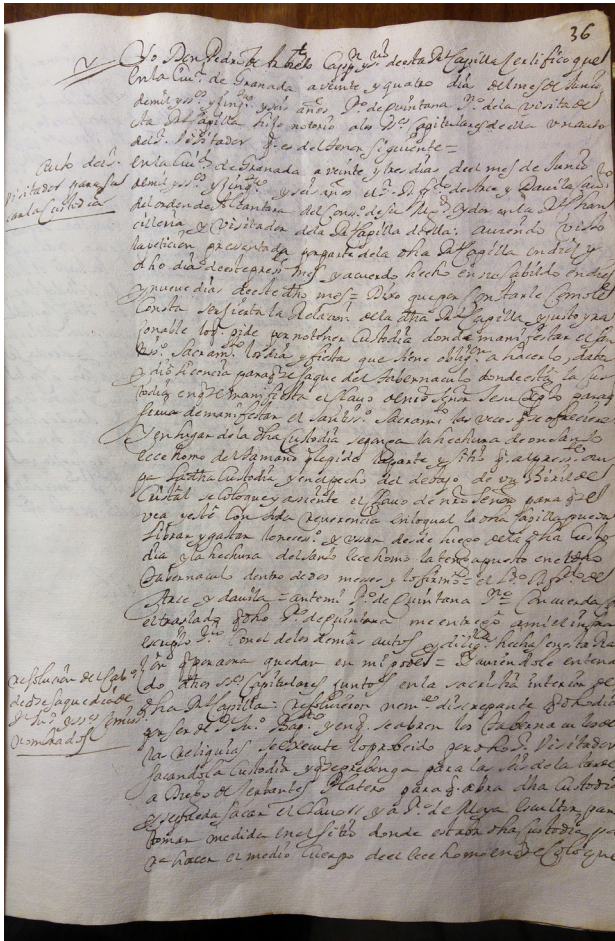 36
Yo Don Pedro de
Capp. y s.º desta R.l Capilla Certifico que
En la Ciu.d de Granada a veinte y quatro dia del mes de Junio
de mil y ss.os y cinq.ta y seis años P.º de quintana s.º de la visita de
sta R.l Capilla hiso notorio a los S.es Capitulares de ella un auto
del S.r Visitador q. es del tenor siguiente =
auto del s.r
Visitador para sa
car la Custodia
en la Ciu.d de Granada a veinte y tres dias de el mes de Junio
de mil y ss.os y cinq.ta y seis años el S.r de Arce y Davila
del orden de Alcantara del Cons.º de su Mg.d y oydor en la R.l Chan
cilleria y Visitador de la R.l Capilla della auiendo visto
la peticion presentada por parte de la dha R.l Capilla en diez y
ocho dias deste press.te mes y acuerdo hecho en su cabildo en diez
y nueue dias deeste dho mes = Dixo que por Constarle Como le
Consta ser sierta la Relacion de la dha R.l Capilla y justo y ra
sonable lo q. pide por no tener Custodia donde manifestar el san
tiss.º Sacram.to los dias y fiesta que tiene oblig.on a hacerlo, daba
y dio licencia para q. se saque del tabernaculo donde está la Cus
todia en q. se manifiesta el Clauo de nro Señor para q.
sirua de manifestar el santiss.º Sacram.to las veces q. se ofreciere
y en lugar de la dha Custodia se ponga la hechura de un santo
ecce homo del tamaño q. pide la parte y sitio q. al pres.te ocu
pa la dha Custodia y en el pecho del debajo de un Biril de
Cristal se Coloque y asiente el Clauo de nro Señor para q. se
vea y esté con toda reuerencia en lo qual la dha Capilla pueda
librar y gastar lo neces.º y vsar desde luego de la dha Custo
dia y la hechura del santo ecce homo la tenga puesto en el dho
tabernaculo dentro de dos meses y lo firmó = el L.do de
Arce y davila = ante mi P.º de quintana s.º Concuerda
el traslado q. dho P.º de quintana me entrego a mi el infra
escripto s.º con el de los demas autos y dilig.as hechas en esta
q. por aora quedan en mi poder =
resolucion del Cab.º
nombrados
auiendole entendi
do dhos s.es Capitulares juntos en la sacristia interior de
dha R.l Capilla: resoluieron nem.e discrepante q. oho dia
por ser de S. Ju.º Bap.ta y en q. se abren los tabernaculos de
la reliquias se execute lo probeido por dho s.r Visitador
sacando la Custodia y q. se prebenga para la de la tarde
a Diego de Serbantes Platero para q. abra dha Custodia
y se pueda sacar el Clauo y a P.º de Mena escultor para
tomar medida en el sitio donde estaba dha Custodia pa
ra hacer el medio Cuerpo de el ecce homo en q. se Coloque